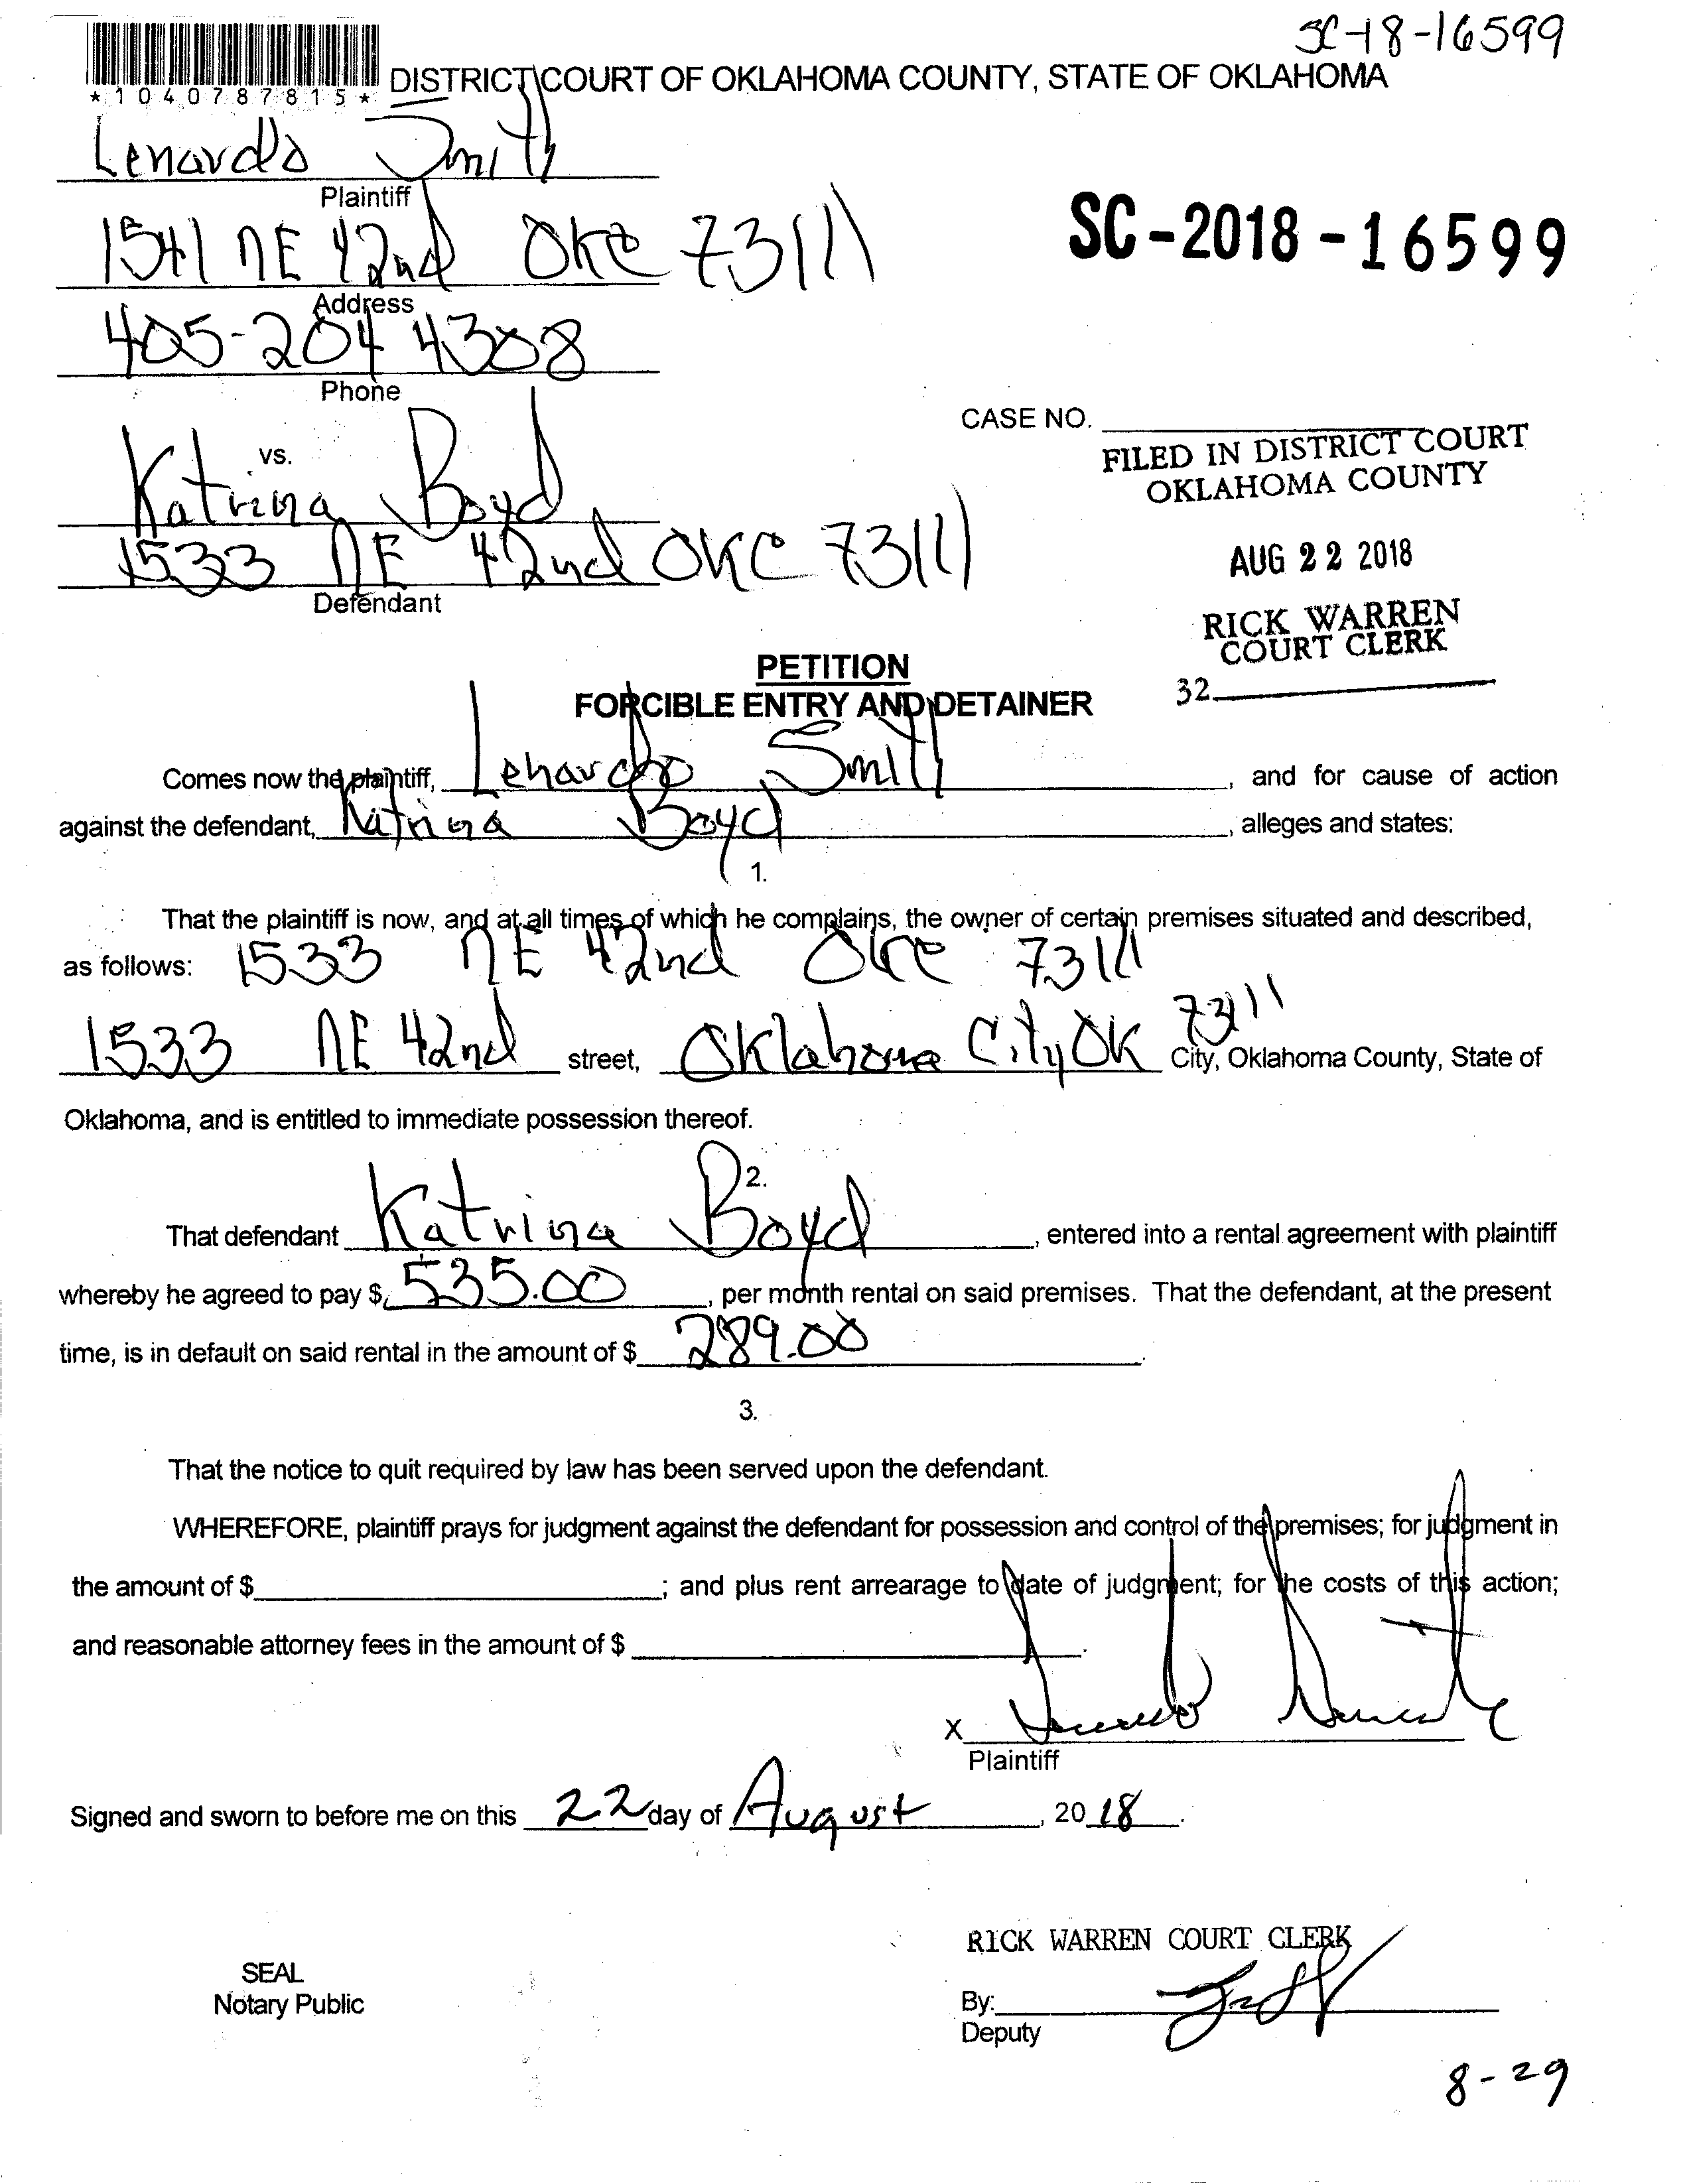 SC-18-16599
*1040787815*
DISTRICT COURT OF OKLAHOMA COUNTY, STATE OF OKLAHOMA
Lenardo Smith
Plaintiff
1541 NE 42nd OKC 73111
SC-2018-16599
Address
405-204 4308
Phone
CASE NO.
vs.
FILED IN DISTRICT COURT
OKLAHOMA COUNTY
Katrina Boyd
1533 NE 42nd OKC 73111
AUG 22 2018
Defendant
RICK WARREN
COURT CLERK
32
PETITION
FORCIBLE ENTRY AND DETAINER
Comes now the plaintiff, Lenardo Smith, and for cause of action
against the defendant, Katrina Boyd, alleges and states:
1.
That the plaintiff is now, and at all times of which he complains, the owner of certain premises situated and described,
as follows: 1533 NE 42nd OKC 73111
1533 NE 42nd street, Oklahoma City OK 73111 City, Oklahoma County, State of
Oklahoma, and is entitled to immediate possession thereof.
2.
That defendant Katrina Boyd, entered into a rental agreement with plaintiff
whereby he agreed to pay $ 535.00, per month rental on said premises. That the defendant, at the present
time, is in default on said rental in the amount of $ 289.00.
3.
That the notice to quit required by law has been served upon the defendant.
WHEREFORE, plaintiff prays for judgment against the defendant for possession and control of the premises; for judgment in
the amount of $; and plus rent arrearage to date of judgment; for the costs of this action;
and reasonable attorney fees in the amount of $.
X Lenardo Smith
Plaintiff
Signed and sworn to before me on this 22 day of August, 2018.
RICK WARREN COURT CLERK
SEAL
Notary Public
By:
Deputy
8-29